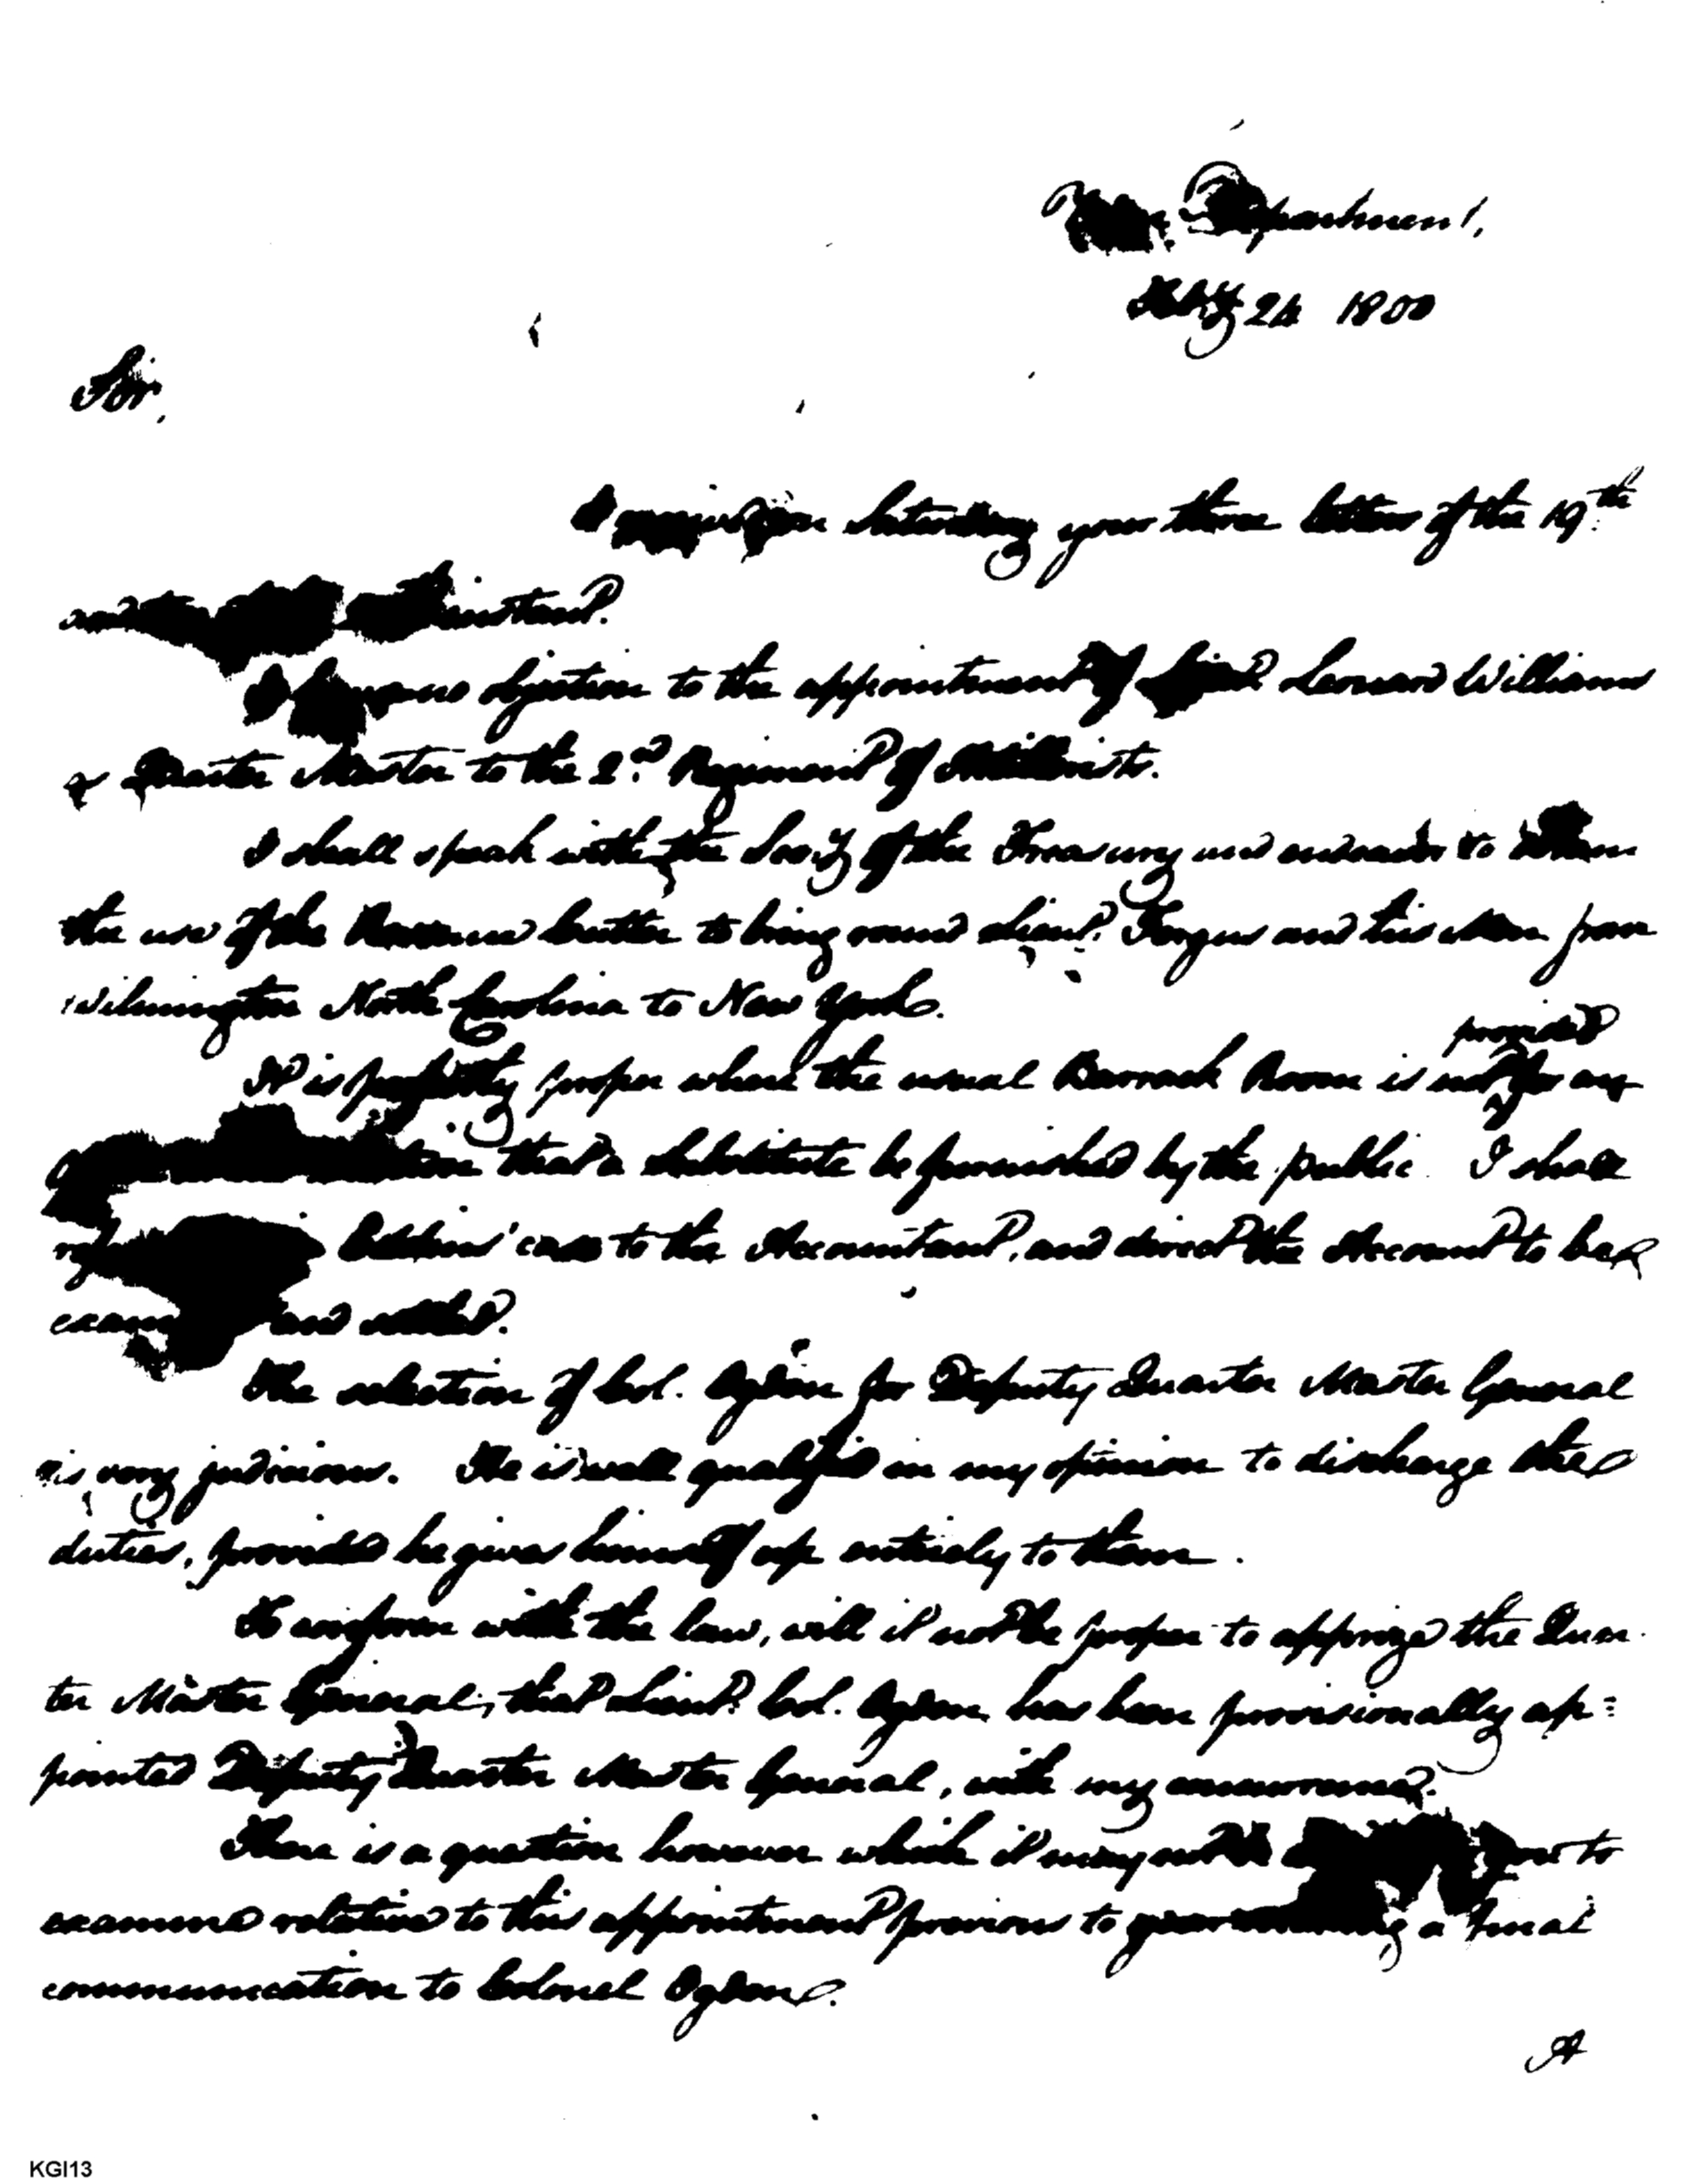 War Department,
24 1800
Sir,
I Saturday your three letters of the 19th
and instant.
I have no objection to the appointment of William
Quarter Master to the 2d Regiment of Artillerists.
I shall speak with the Secy of the Treasury and endeavor to obtain
the use of the Revenue Cutter to bring round Lieut. Fergus and his Men from
Wilmington North Carolina to New York.
It is perfectly proper where the usual Barrack Room is not for any
provided
that a substitute be furnished by the public. I shall
case to the Accountant, and direct the Account to be
and settled.
The selection of Col. Ogden for Deputy Quarter Master General
is very judicious. He is well qualified in my opinion to discharge the
duties, provided he gives himself up entirely to them.
To conform with the law, will it not be proper to apprize the Quar
ter Master General, that Lieut. Col. Ogden has been provisionally ap=
pointed Deputy Quarter Master General, with my concurrence.
There is a question however which it may not be to
examine relative to this appointment previous to a final
communication to Colonel Ogden.
A
KGI13